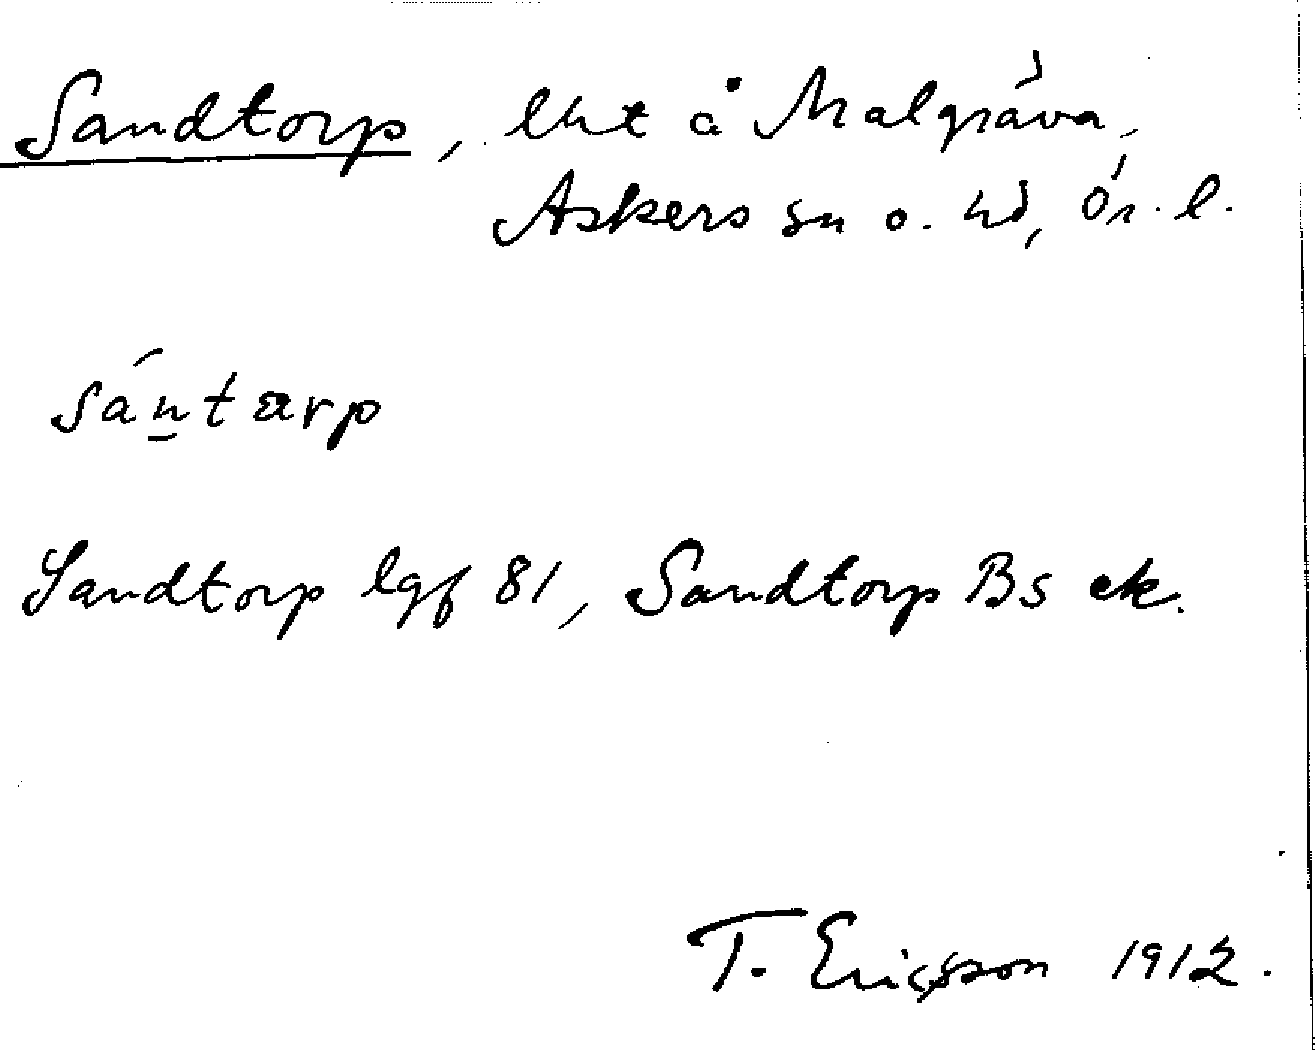 Sandtorp, lht å Malgräva,
Askers sn o. hd, Ör. l.
sán̲tarp
Sandtorp lgf 81, Sandtorp Bs ek.
T. Ericsson 1912.